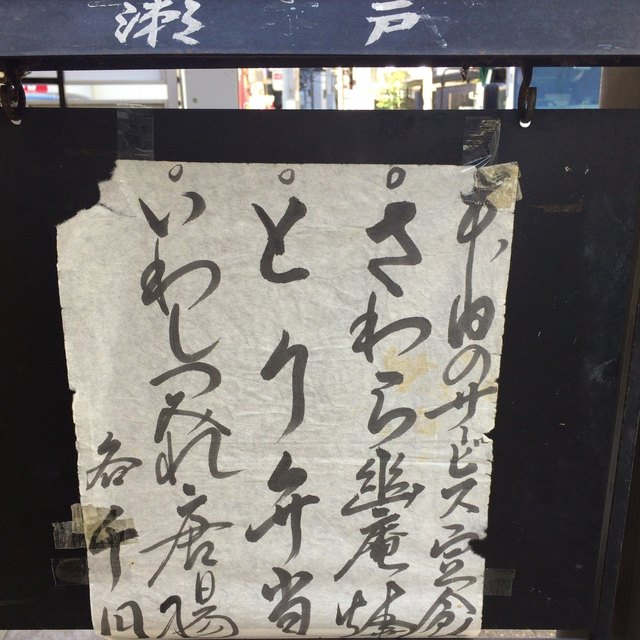 瀬戸
本日のサービス定食
○さわら幽庵焼
○とり弁当
○いわしつみれ唐揚
各千円